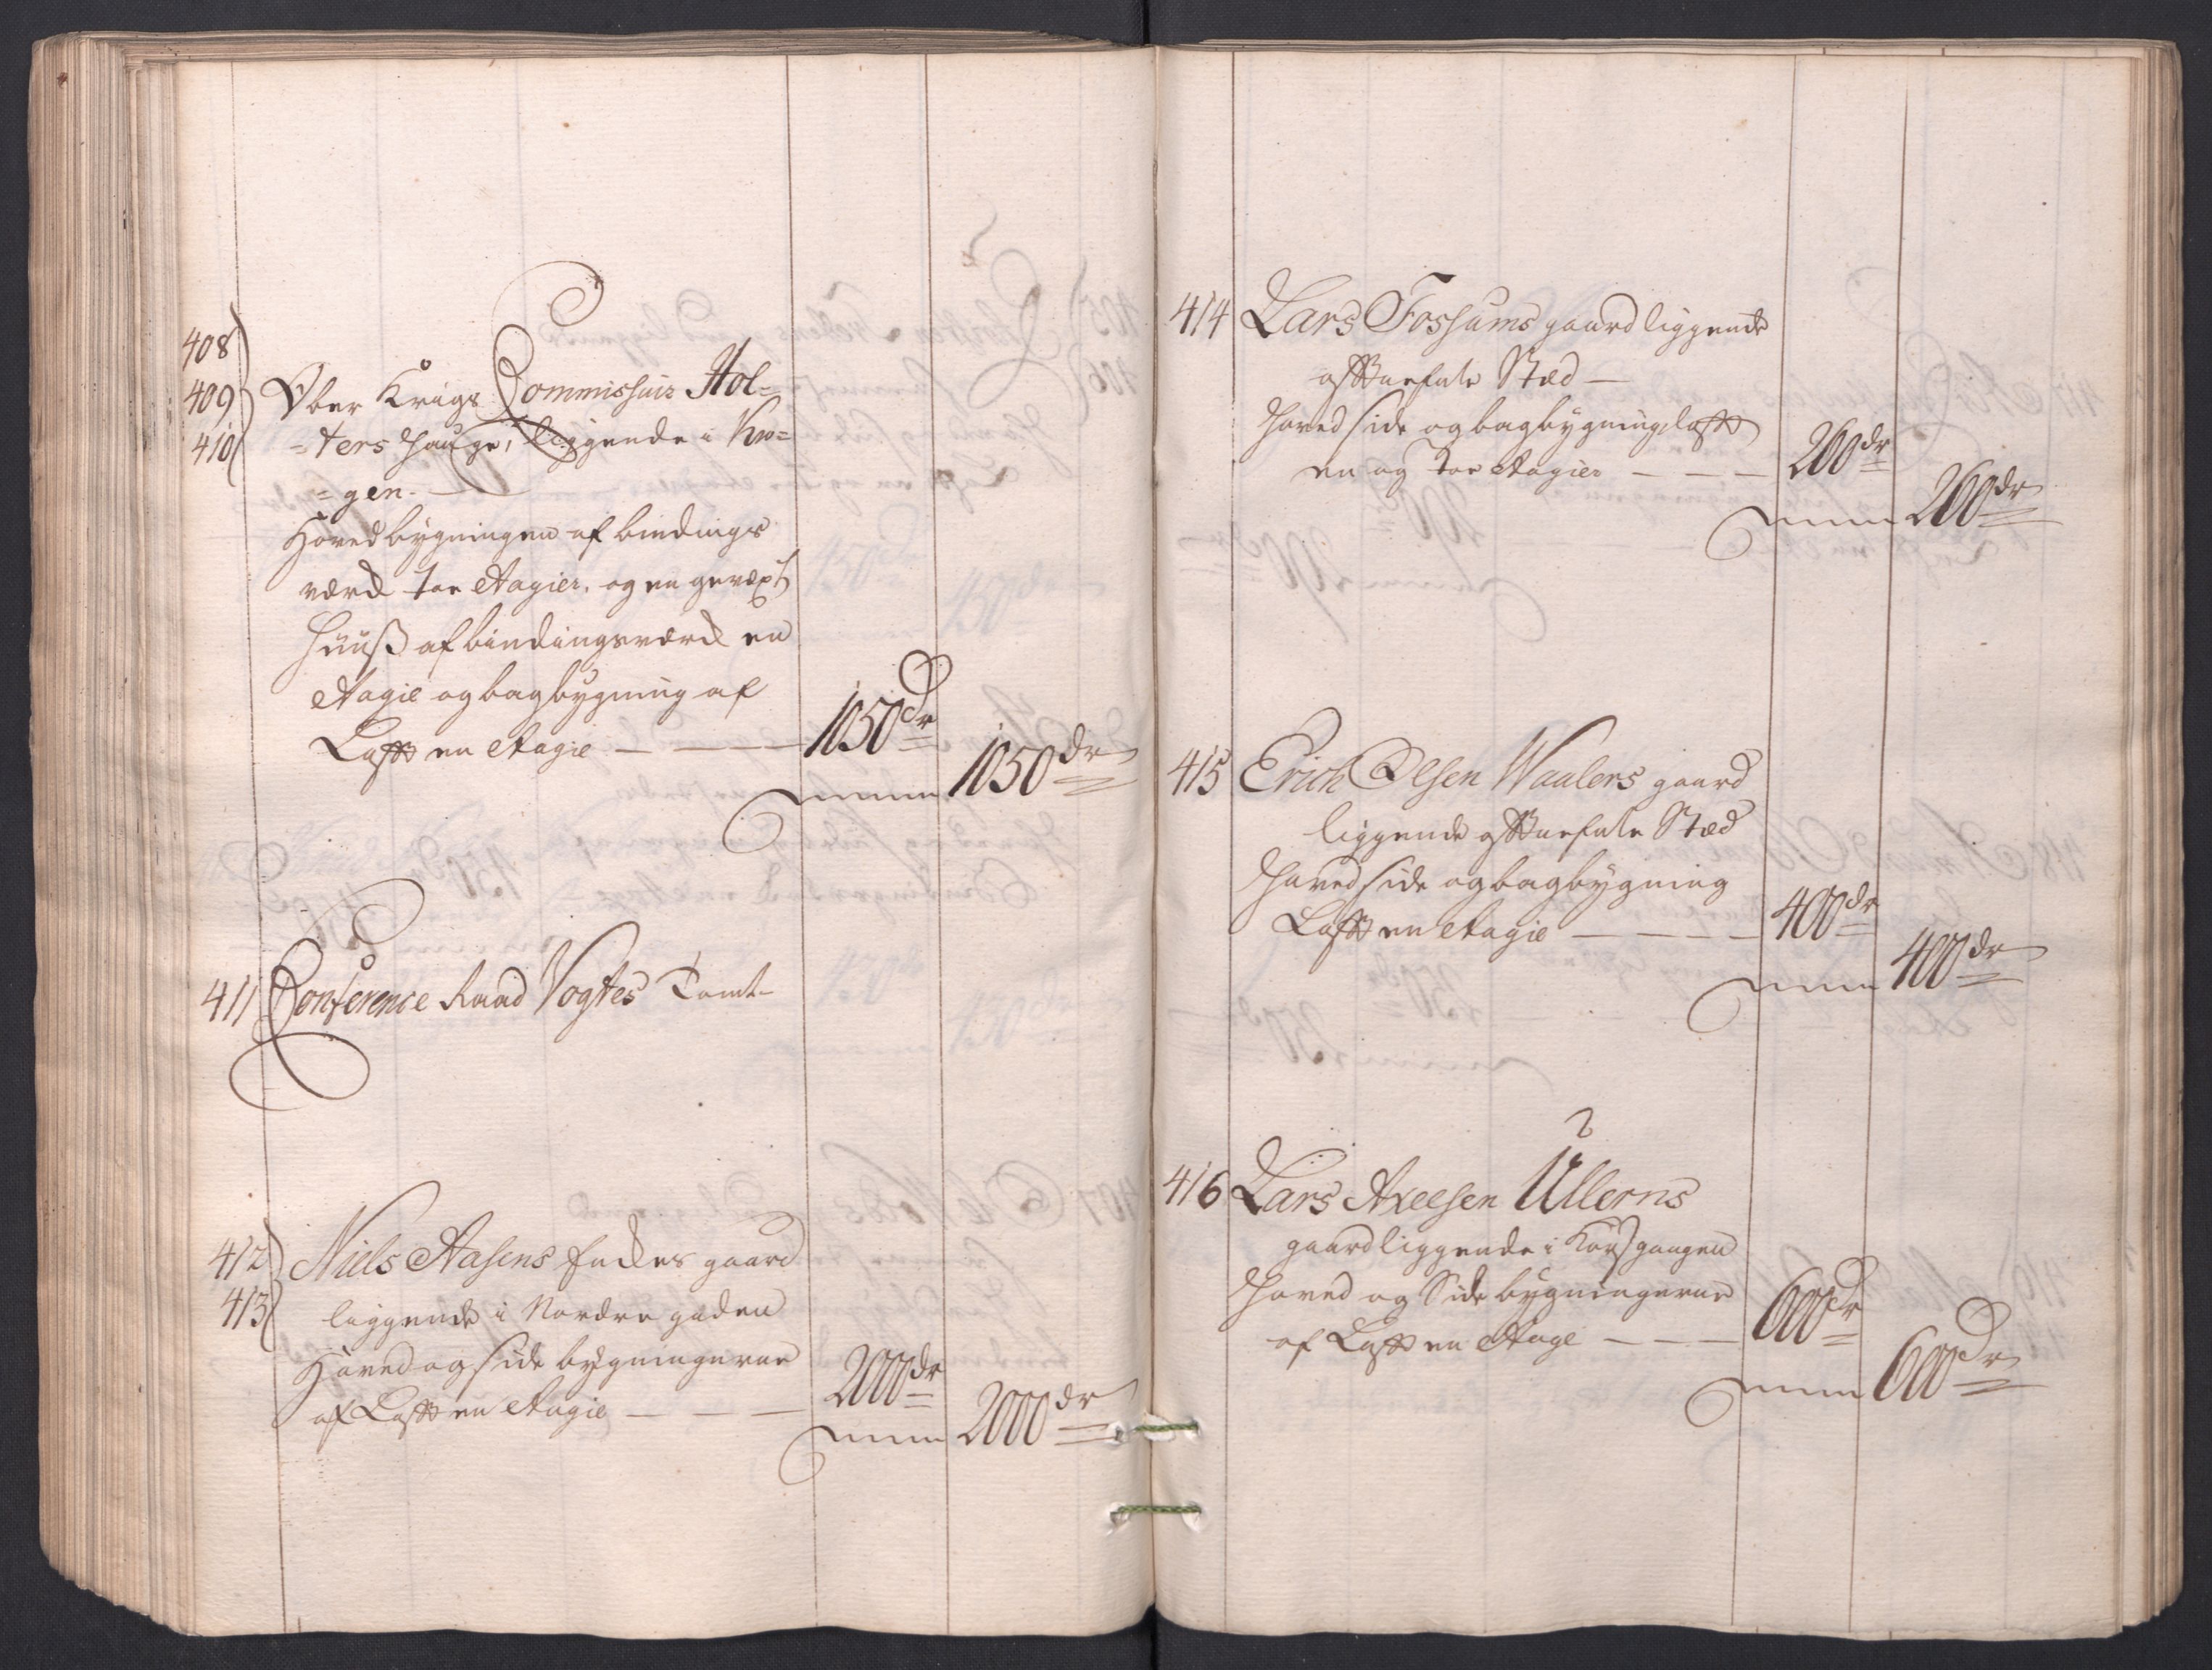 408
409
410
Ober Krigs Commissair Hol=
=ters Hauge, liggende i Kro=
=gen.
Hovedbygningen af bindings
værck toe Etagier, og en gevext
Huuß af bindingsværck en
Etagie og bagbygning af
Laft en Etagie — — — 1050 dr
1050 dr
411 Conference Raad Vogtes Tomt
412
413
Niels Aasens Enckes gaard
liggende i Nordre gaden
Hoved og side bygningerne
af Laft en Etagie — — — 2000 dr
2000 dr
414 Lars Fossums gaard liggende
Stæd —
Hoved side og bagbygning laft
en og toe Etagier — — — 260 dr
260 dr
415 Erich Olsen Waalers gaard
liggende Stæd
Hoved side og bagbygning
Laft en Etagie — — — — 400 dr
400 dr
416 Lars Axelsen Ullerns
gaard liggende i Kors gangen
Hoved og Side bygningerne
af Laft en Etage — — — 600 dr
600 dr